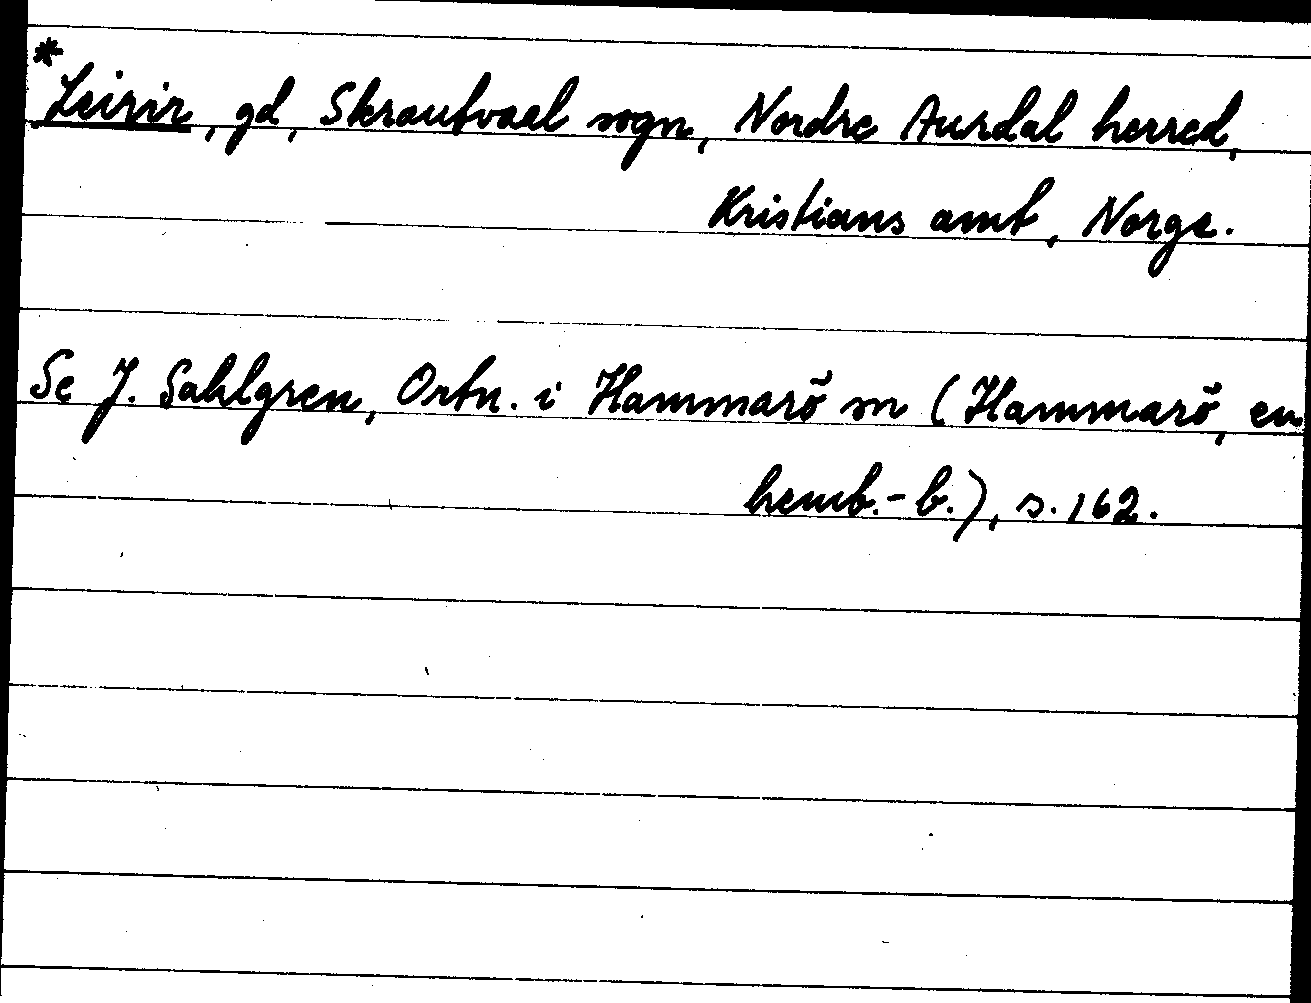 *Leirir, gd, Skrautvael sogn, Nordre Aurdal herred,
Kristians amt, Norge.
Se J. Sahlgren, Ortn. i Hammarö sn (Hammarö, en
hemb.-b.), s. 162.